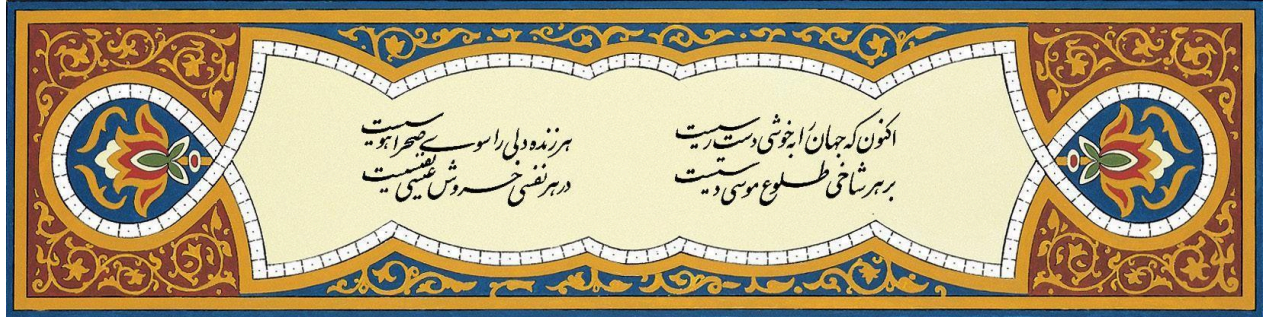 اکنون که جهان را به خوشی دسترسیست
هر زنده دلی را سوی صحرا هوسیست
بر هر شاخی طلوع موسی دستیست
در هر نفسی خروش عیسی نفسیست